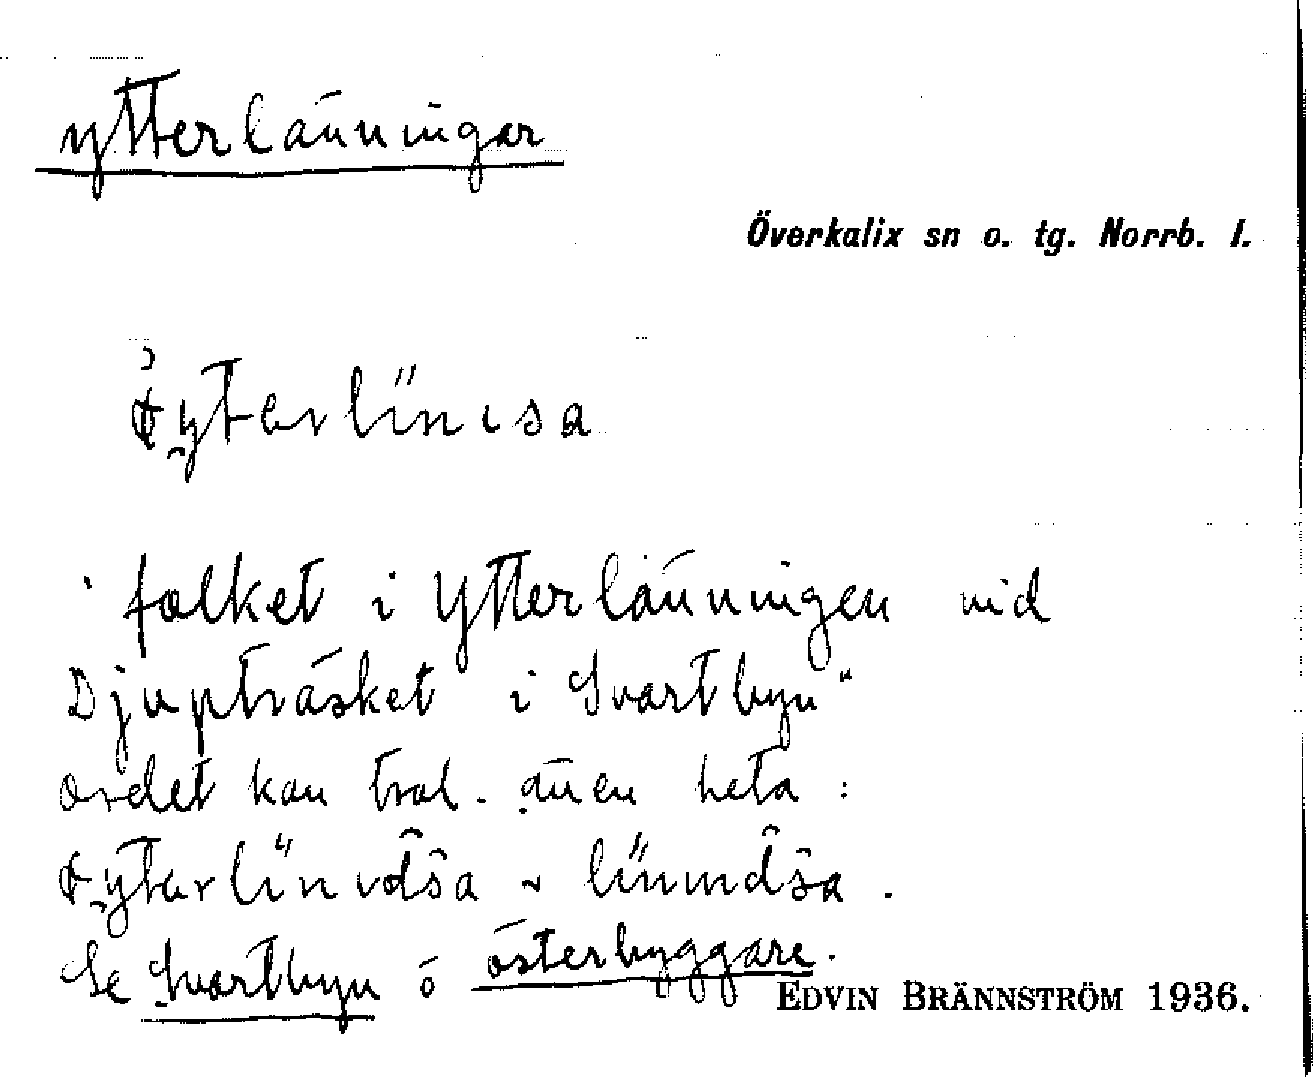 ytterlänningar
Överkalix sn o. tg. Norrb. l.
folket i Ytterlänningen vid
Djupträsket i Svartbyn"
ordet kan trol. även heta :
Se Svartbyn o österbyggare.
EDVIN BRÄNNSTRÖM 1936.